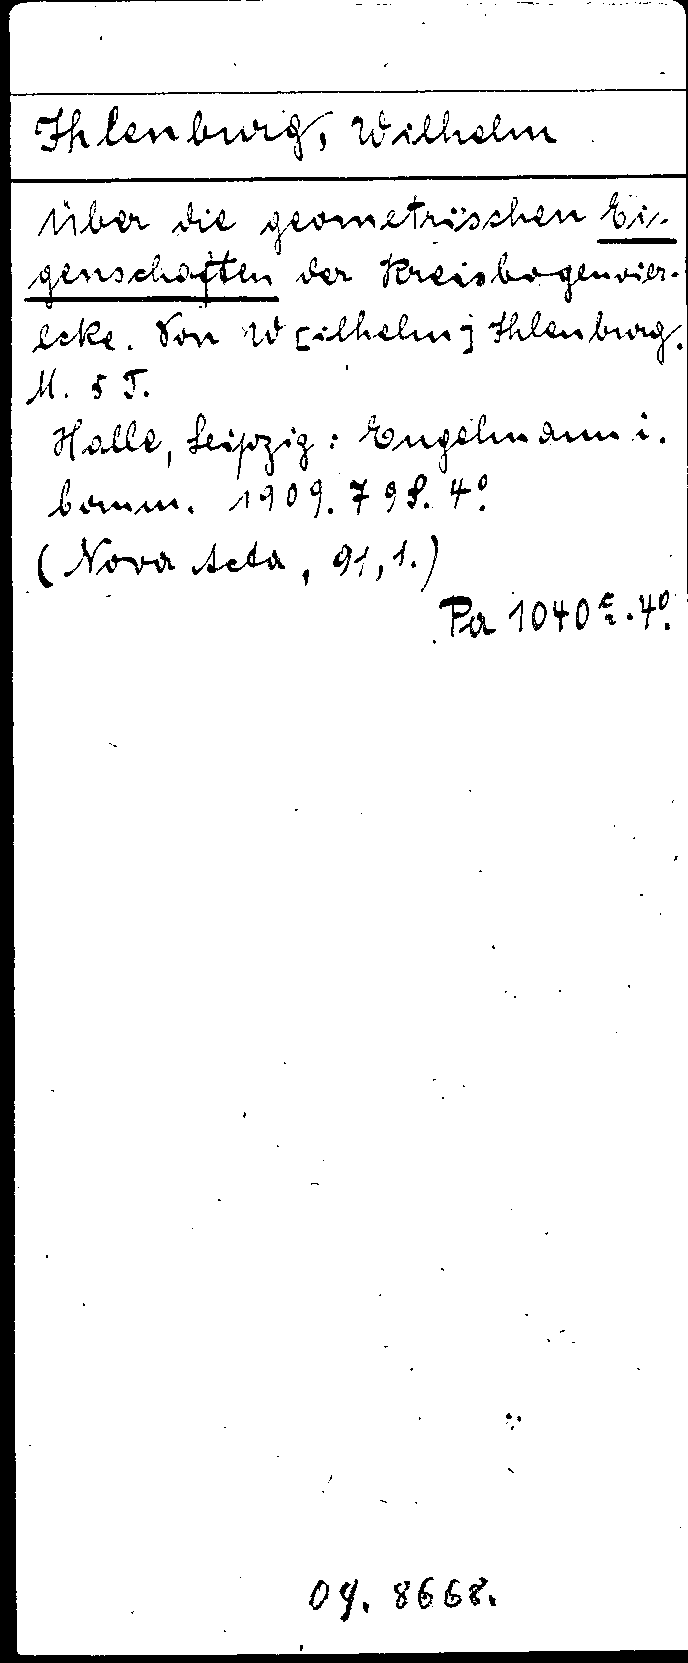 Ihlenburg, Wilhelm
Über die geometrischen Ei-
genschaften der Kreisbogenvier-
ecke. Von W[ilhelm] Ihlenburg.
M. 5 T.
Halle, Leipzig: Engelmann i.
Comm. 1909. 79 S. 4°.
(Nova Acta, 91,1.)
Pa 1040 .4°.
09. 8668.